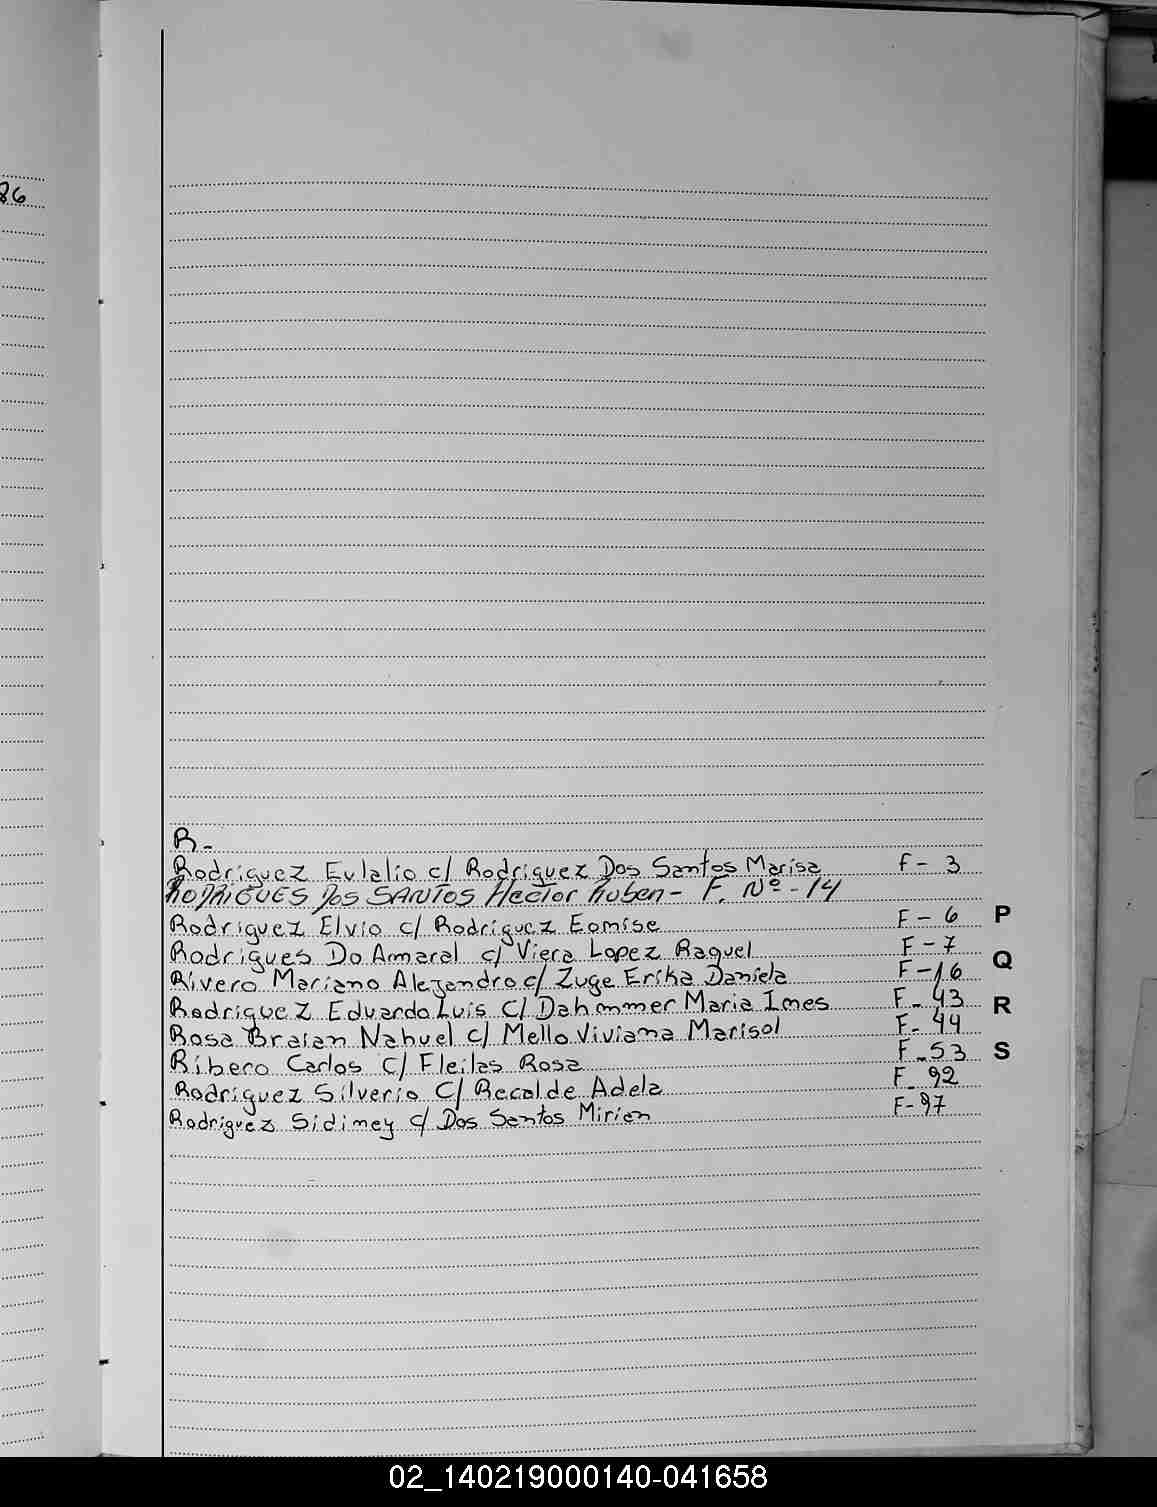 86
R-
Rodriguez Eulalio c/ Rodriguez Dos Santos Marisa F- 3
RODRIGUES DOS SANTOS Hector Ruben- F. Nº-14
Rodriguez Elvio c/ Rodriguez Eomise F- 6
Rodrigues Do Amaral c/ Viera Lopez Raquel F-7
Rivero Mariano Alejandro c/ Zuge Erika Daniela F-16
Rodriguez Eduardo Luis C/ Dahmmer Maria Ines F- 43
Rosa Braian Nahuel c/ Mello Viviana Marisol F- 44
Ribero Carlos C/ Fleilas Rosa F-53
Rodriguez Silverio C/ Recalde Adela F- 92
Rodriguez Sidimey c/ Dos Santos Mirian F-97
P
Q
R
S
02_140219000140-041658